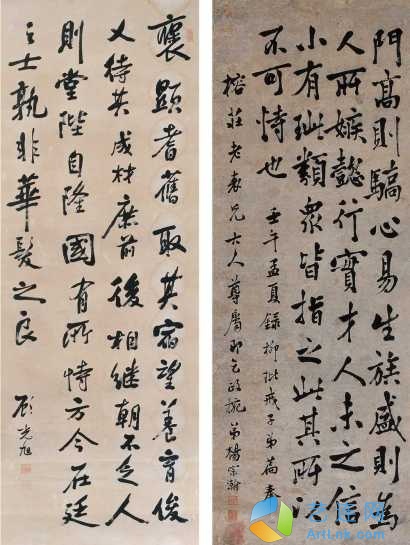 門高則驕心易生族盛則為
人所嫉懿行實才人未之信
小有玼纇眾皆指之此其所以
不可恃也
壬午孟夏錄柳玭戒子弟篇奉
榕莊老表兄大人尊屬即乞政 弟楊宗瀚
褒顯耆舊取其宿望養育俊
乂待其成材庶前後相繼朝不乏人
則堂陛自隆國有所恃方今在廷
之士孰非華髮之良
顧光旭